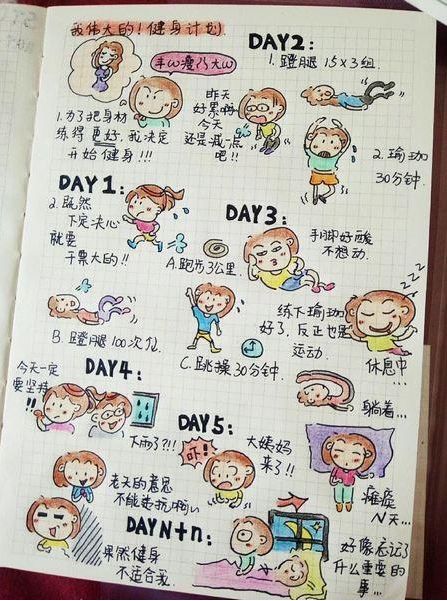 我伟大的！健身计划
丰ω瘦ろ大ω
1.为了把身材
练得更好.我决定
开始健身!!!
DAY 1:
2.既然
下定决心
就要
干票大的!!
A.跑步3公里.
B.蹬腿100次/位
C.跳操30分钟.
DAY2:
昨天
好累啊
今天
还是减一点
吧!!
1.蹬腿 15×3组.
2.瑜珈
30分钟.
DAY3:
手脚好酸
不想动.
练下瑜珈
好了.反正也是
运动.
zzz
休息中...
躺着...
DAY4:
今天一定
要坚持
!!
下雨了?!!
老天的意思
不能违抗啊
DAY5:
吓!
大姨妈
来了!!
瘫痪
N天...
DAY N+n:
果然健身
不适合我.
好像忘记了
什么重要的
事...